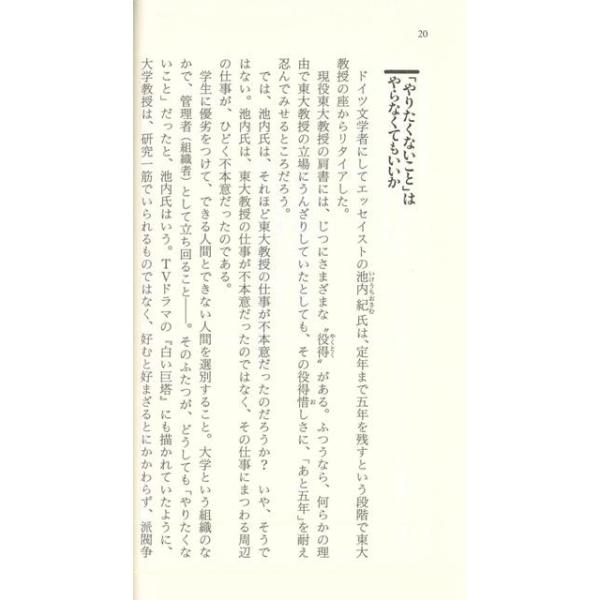 20
「やりたくないこと」は
やらなくてもいいか
ドイツ文学者にしてエッセイストの池内紀氏は、定年まで五年を残すという段階で東大
いけうちおさむ
教授の座からリタイアした。
現役東大教授の肩書には、じつにさまざまな〝役得〟がある。ふつうなら、何らかの理
やくとく
由で東大教授の立場にうんざりしていたとしても、その役得惜しさに、「あと五年」を耐え
お
忍んでみせるところだろう。
では、池内氏は、それほど東大教授の仕事が不本意だったのだろうか？　いや、そうで
はない。池内氏は、東大教授の仕事が不本意だったのではなく、その仕事にまつわる周辺
の仕事が、ひどく不本意だったのである。
学生に優劣をつけて、できる人間とできない人間を選別すること。大学という組織のな
かで、管理者（組織者）として立ち回ること――。そのふたつが、どうしても「やりたくな
いこと」だったと、池内氏はいう。ＴＶドラマの『白い巨塔』にも描かれていたように、
大学教授は、研究一筋でいられるものではなく、好むと好まざるとにかかわらず、派閥争